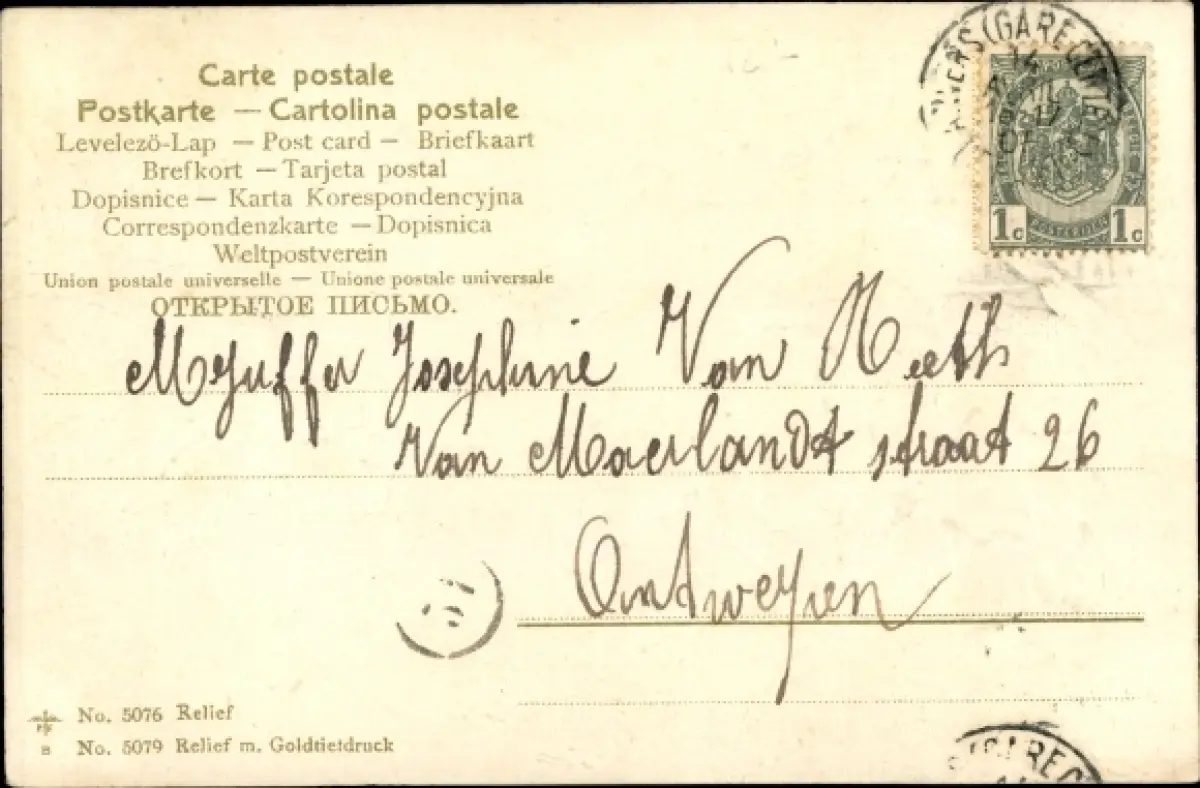 Carte postale
Postkarte — Cartolina postale
Levelezö-Lap — Post card — Briefkaart
Brefkort — Tarjeta postal
Dopisnice — Karta Korespondencyjna
Correspondenzkarte — Dopisnica
Weltpostverein
Union postale universelle — Unione postale universale
ОТКРЫТОЕ ПИСЬМО.
(GARE
1c 1c
Mejuffer Josephine Van Reeth
Van Maerlandt straat 26
Antwerpen
No. 5076 Relief
B No. 5079 Relief m. Goldtietdruck
(GARE C